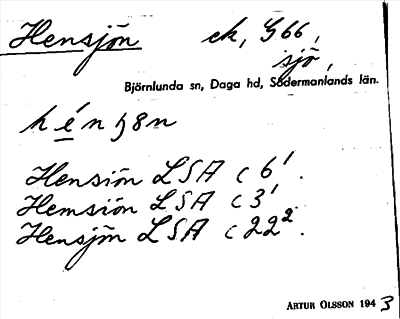 Hensjön ek, G66,
sjö,
Björnlunda sn, Daga hd, Södermanlands län.
hénʒ8n
Hensiön LSA c 6¹.
Hemsiön LSA c 3¹
Hensjön LSA c 22².
ARTUR OLSSON 1943